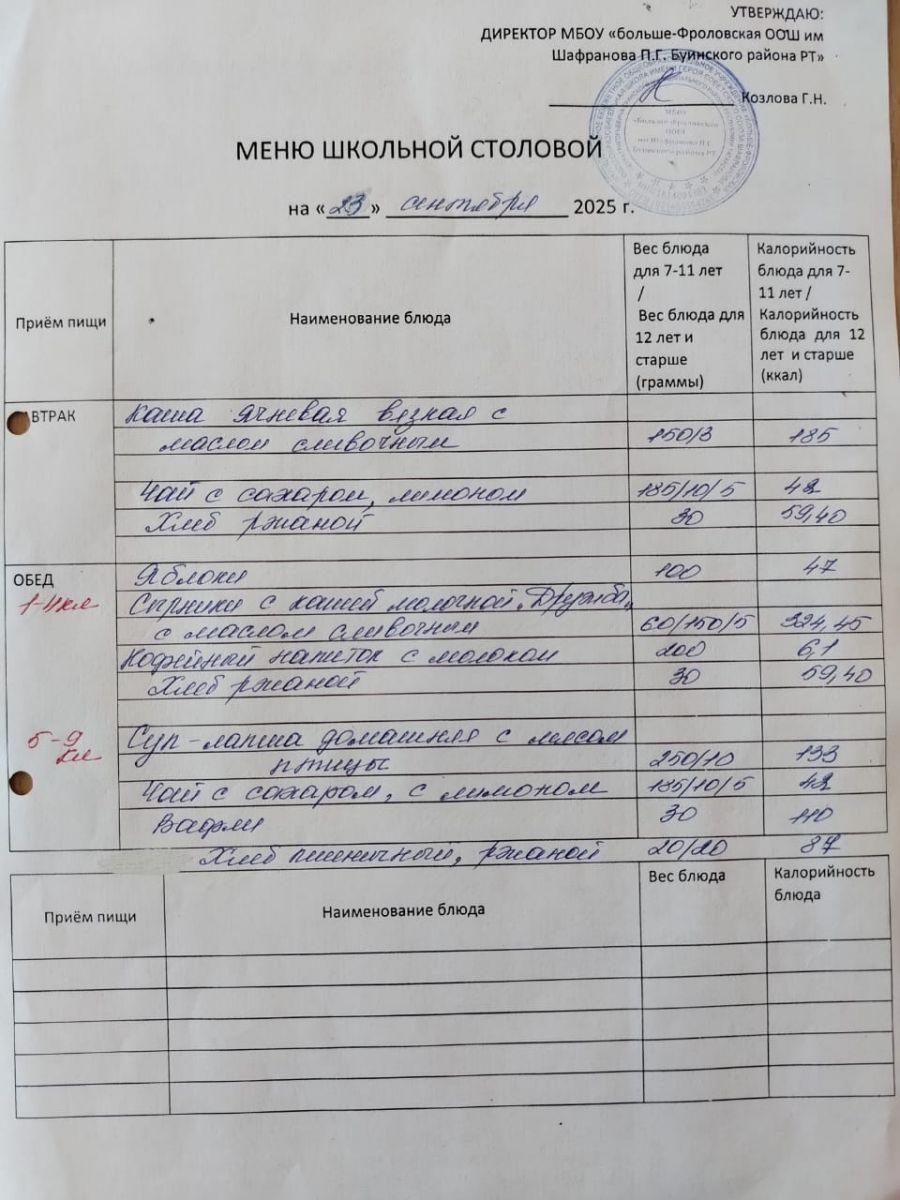 УТВЕРЖДАЮ:
ДИРЕКТОР МБОУ «больше-Фроловская ООШ им
Шафранова П.Г. Буинского района РТ»
Козлова Г.Н.
МБОУ
«Больше-Фроловская
ООШ
им Шафранова П.Г.
Буинского района РТ
МЕНЮ ШКОЛЬНОЙ СТОЛОВОЙ
на «23» сентября 2025 г.
Приём пищи Наименование блюда Вес блюда для 7-11 лет / Вес блюда для 12 лет и старше (граммы) Калорийность блюда для 7-11 лет / Калорийность блюда для 12 лет и старше (ккал)
ВТРАК Каша ячневая вязкая с
маслом сливочным 150/3 185
Чай с сахаром, лимоном 185/10/5 42
Хлеб ржаной 30 59,40
ОБЕД Яблоки 100 47
1-4кл Сырники с кашей молочной "Дружба"
с маслом сливочным 60/150/5 324,45
Кофейный напиток с молоком 200 6,1
Хлеб ржаной 30 59,40
5-9 кл Суп-лапша домашняя с мясом
птицы 250/10 133
Чай с сахаром, с лимоном 185/10/5 42
Вафли 30 110
Хлеб пшеничный, ржаной 20/20 87
Приём пищи Наименование блюда Вес блюда Калорийность блюда